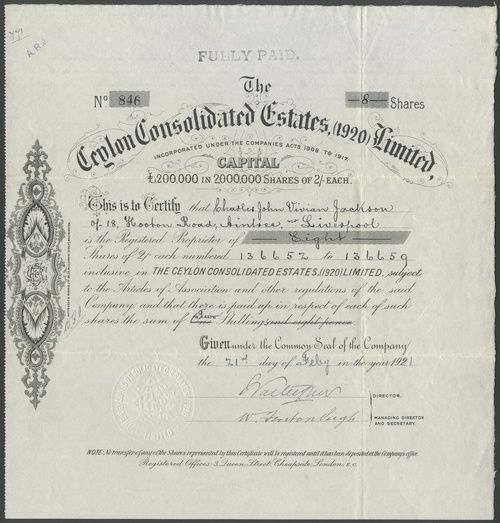 FULLY PAID.
The
No 846
-8- Shares
Ceylon Consolidated Estates, (1920) Limited,
INCORPORATED UNDER THE COMPANIES ACTS 1908 TO 1917.
CAPITAL
£200,000 IN 2000,000 SHARES OF 2/- EACH.
This is to Certify that Charles John Vivian Jackson
of 18, Hooton Road, Aintree, Nr Liverpool
is the Registered Proprietor of — Eight —
Shares of 2/- each numbered 136652 to 136659
inclusive in THE CEYLON CONSOLIDATED ESTATES, (1920) LIMITED, subject
to the Articles of Association and other regulations of the said
Company and that there is paid up in respect of each of such
shares the sum of Two Shillings and eight pence
Given under the Common Seal of the Company
the 21st day of Feby in the year 1921
DIRECTOR.
MANAGING DIRECTOR
AND SECRETARY.
NOTE: No transfer of any of the Shares represented by this Certificate will be registered until it has been deposited at the Company's office.
Registered Offices: 3, Queen Street, Cheapside, London, E.C.